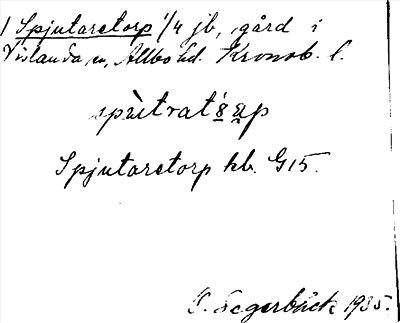 1 Spjutaretorp 1/4 jb, gård i
Vislanda sn, Allbo hd. Kronob. l.
Spjutaretorp kb. G15.
O. Segerbäck 1935.